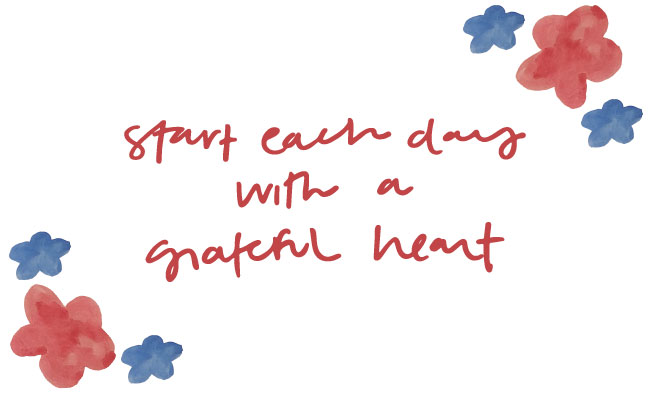 start each day
with a
grateful heart